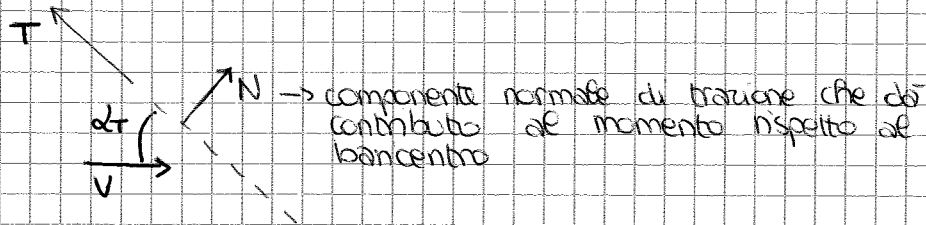 T
N → componente normale di trazione che dà
αT contributo al momento rispetto al
V baricentro